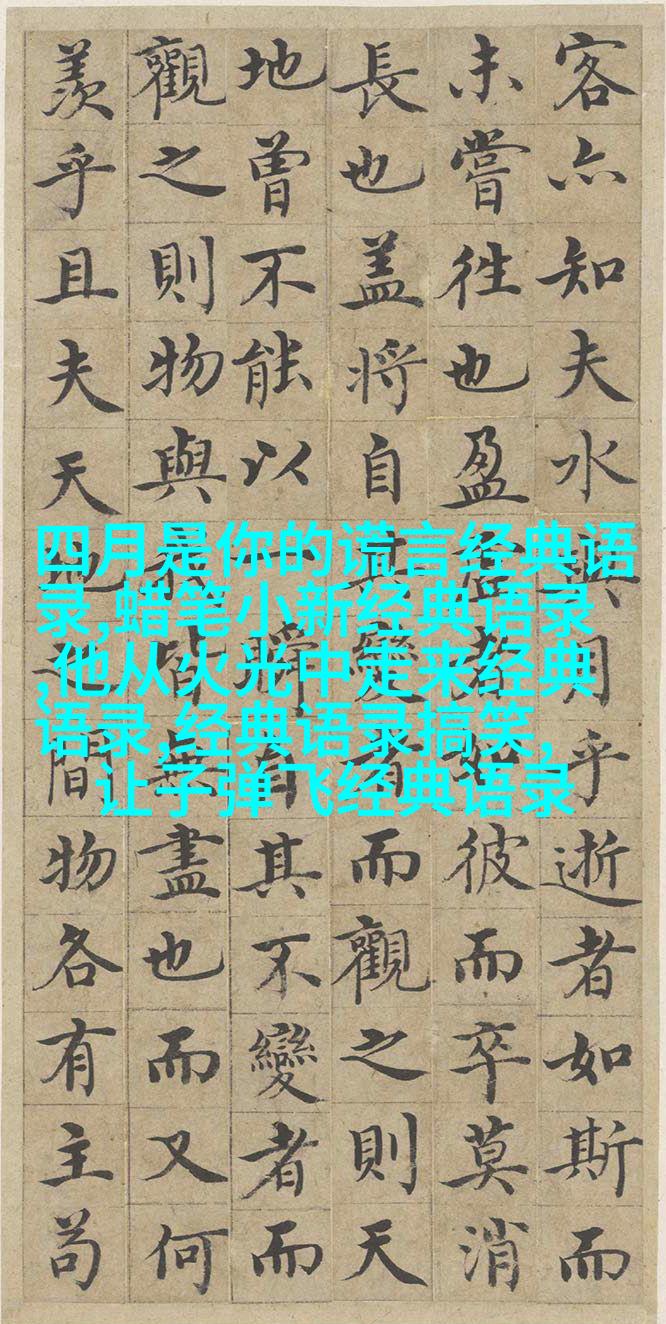 客亦知夫水與月乎逝者如斯而
未嘗往也盈虛者如彼而卒莫消
長也盖将自其變而觀之則天
地曾不能以一瞬自其不變者而
觀之則物與我皆無盡也而又何
羨乎且夫天地之間物各有主苟
四月是你的谎言经典语
录,蜡笔小新经典语录
,他从火光中走来经典
语录,经典语录搞笑,
让子弹飞经典语录